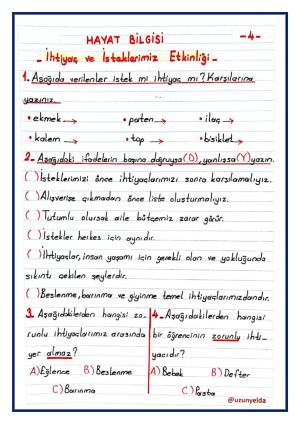 HAYAT BİLGİSİ -4-
- İhtiyaç ve İsteklerimiz Etkinliği -
1- Aşağıda verilenler istek mi ihtiyaç mı? Karşılarına
yazınız.
• ekmek → • paten → • ilaç →
• kalem → • top → • bisiklet →
2- Aşağıdaki ifadelerin başına doğruysa (D), yanlışsa (Y) yazın.
( ) İsteklerimizi önce ihtiyaçlarımızı sonra karşılamalıyız.
( ) Alışverişe çıkmadan önce liste oluşturmalıyız.
( ) Tutumlu olursak aile bütçemiz zarar görür.
( ) İstekler herkes için aynıdır.
( ) İhtiyaçlar, insan yaşamı için gerekli olan ve yokluğunda
sıkıntı çekilen şeylerdir.
( ) Beslenme, barınma ve giyinme temel ihtiyaçlarımızdandır.
3. Aşağıdakilerden hangisi zo-
runlu ihtiyaçlarımız arasında
yer almaz?
A) Eğlence B) Beslenme
C) Barınma
4- Aşağıdakilerden hangisi
bir öğrencinin zorunlu ihti-
yacıdır?
A) Bebek B) Defter
C) Pasta
@uzunyelda